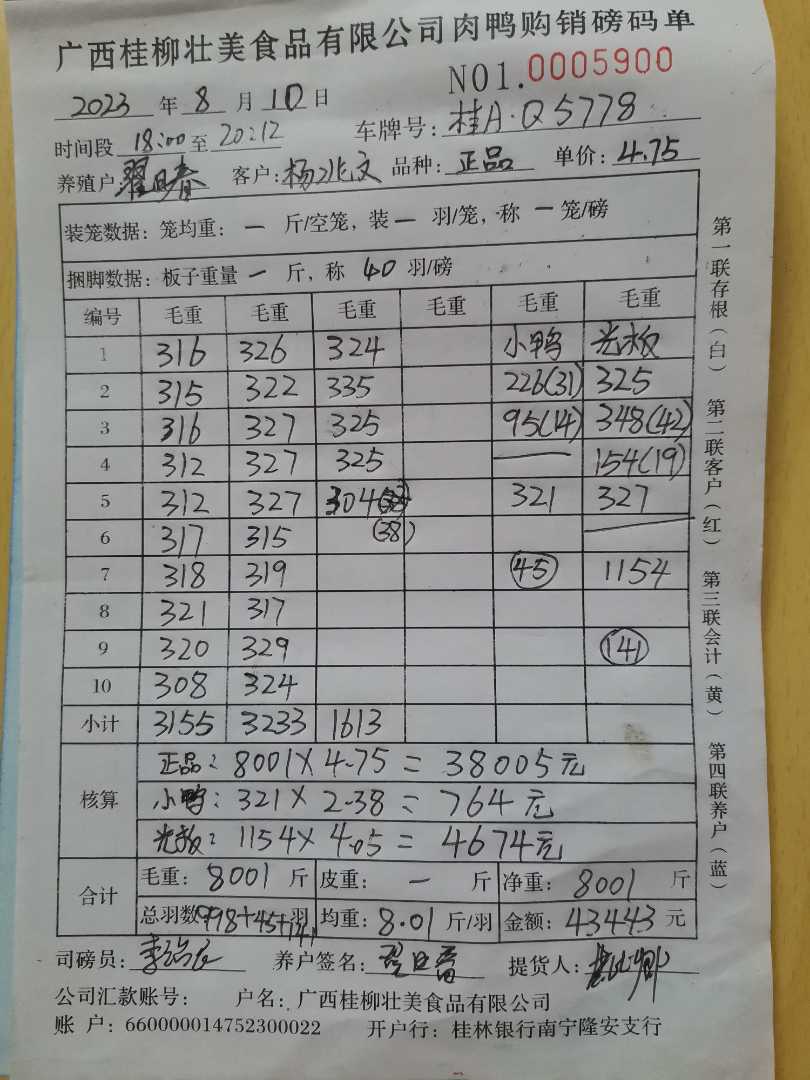 广西桂柳壮美食品有限公司肉鸭购销磅码单
NO1.0005900
2023 年 8 月 10 日
时间段 18:00 至 20:12 车牌号: 桂A·Q5778
养殖户 翟旦春 客户: 杨兆文 品种: 正品 单价: 4.75
装笼数据: 笼均重: 一 斤/空笼, 装 一 羽/笼, 称 一 笼/磅
捆脚数据: 板子重量 一 斤, 称 40 羽/磅
编号 毛重 毛重 毛重 毛重 毛重 毛重
1 316 326 324 小鸭 光板
2 315 322 335 226(31) 325
3 316 327 325 95(14) 348(42)
4 312 327 325 154(19)
5 312 327 304 321 327
6 317 315 (38)
7 318 319 45 1154
8 321 317
9 320 329 141
10 308 324
小计 3155 3233 1613
核算
正品: 8001×4.75=38005元
小鸭: 321×2.38=764元
光板: 1154×4.05=4674元
合计
毛重: 8001 斤 皮重: 一 斤 净重: 8001 斤
总羽数 998+45+141 羽 均重: 8.01 斤/羽 金额: 43443 元
司磅员: 养户签名: 提货人:
公司汇款账号: 户名: 广西桂柳壮美食品有限公司
账 户: 660000014752300022 开户行: 桂林银行南宁隆安支行
第一联存根(白) 第二联客户(红) 第三联会计(黄) 第四联养户(蓝)